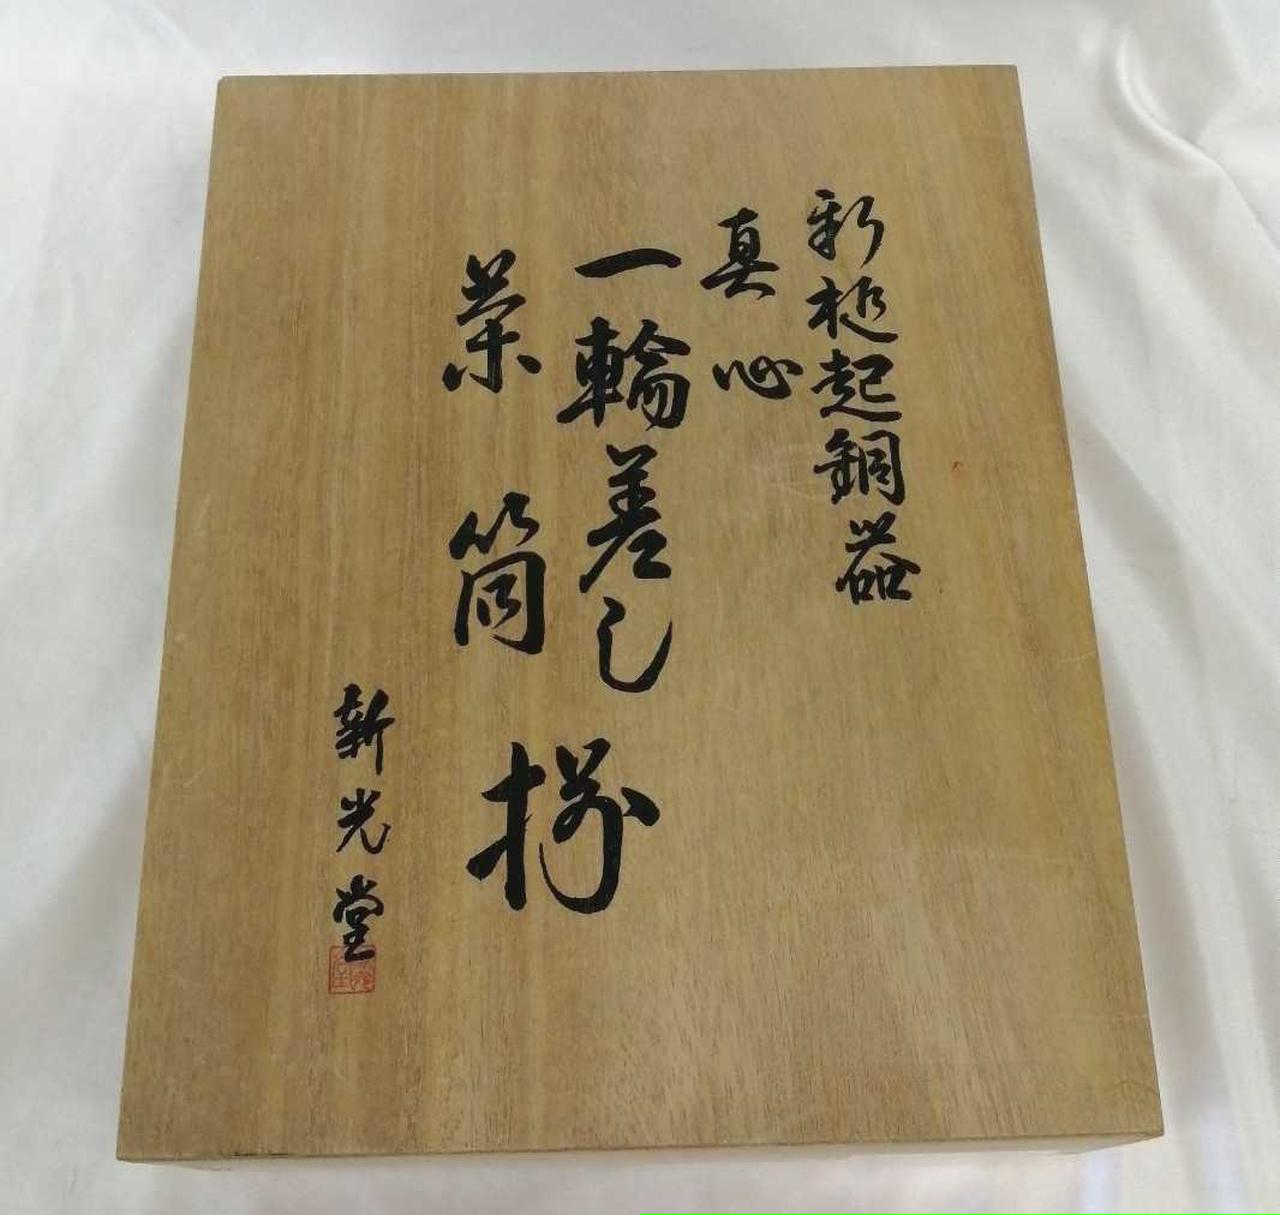 彩槌起銅器
真心
一輪差し
茶筒
揃
新光堂